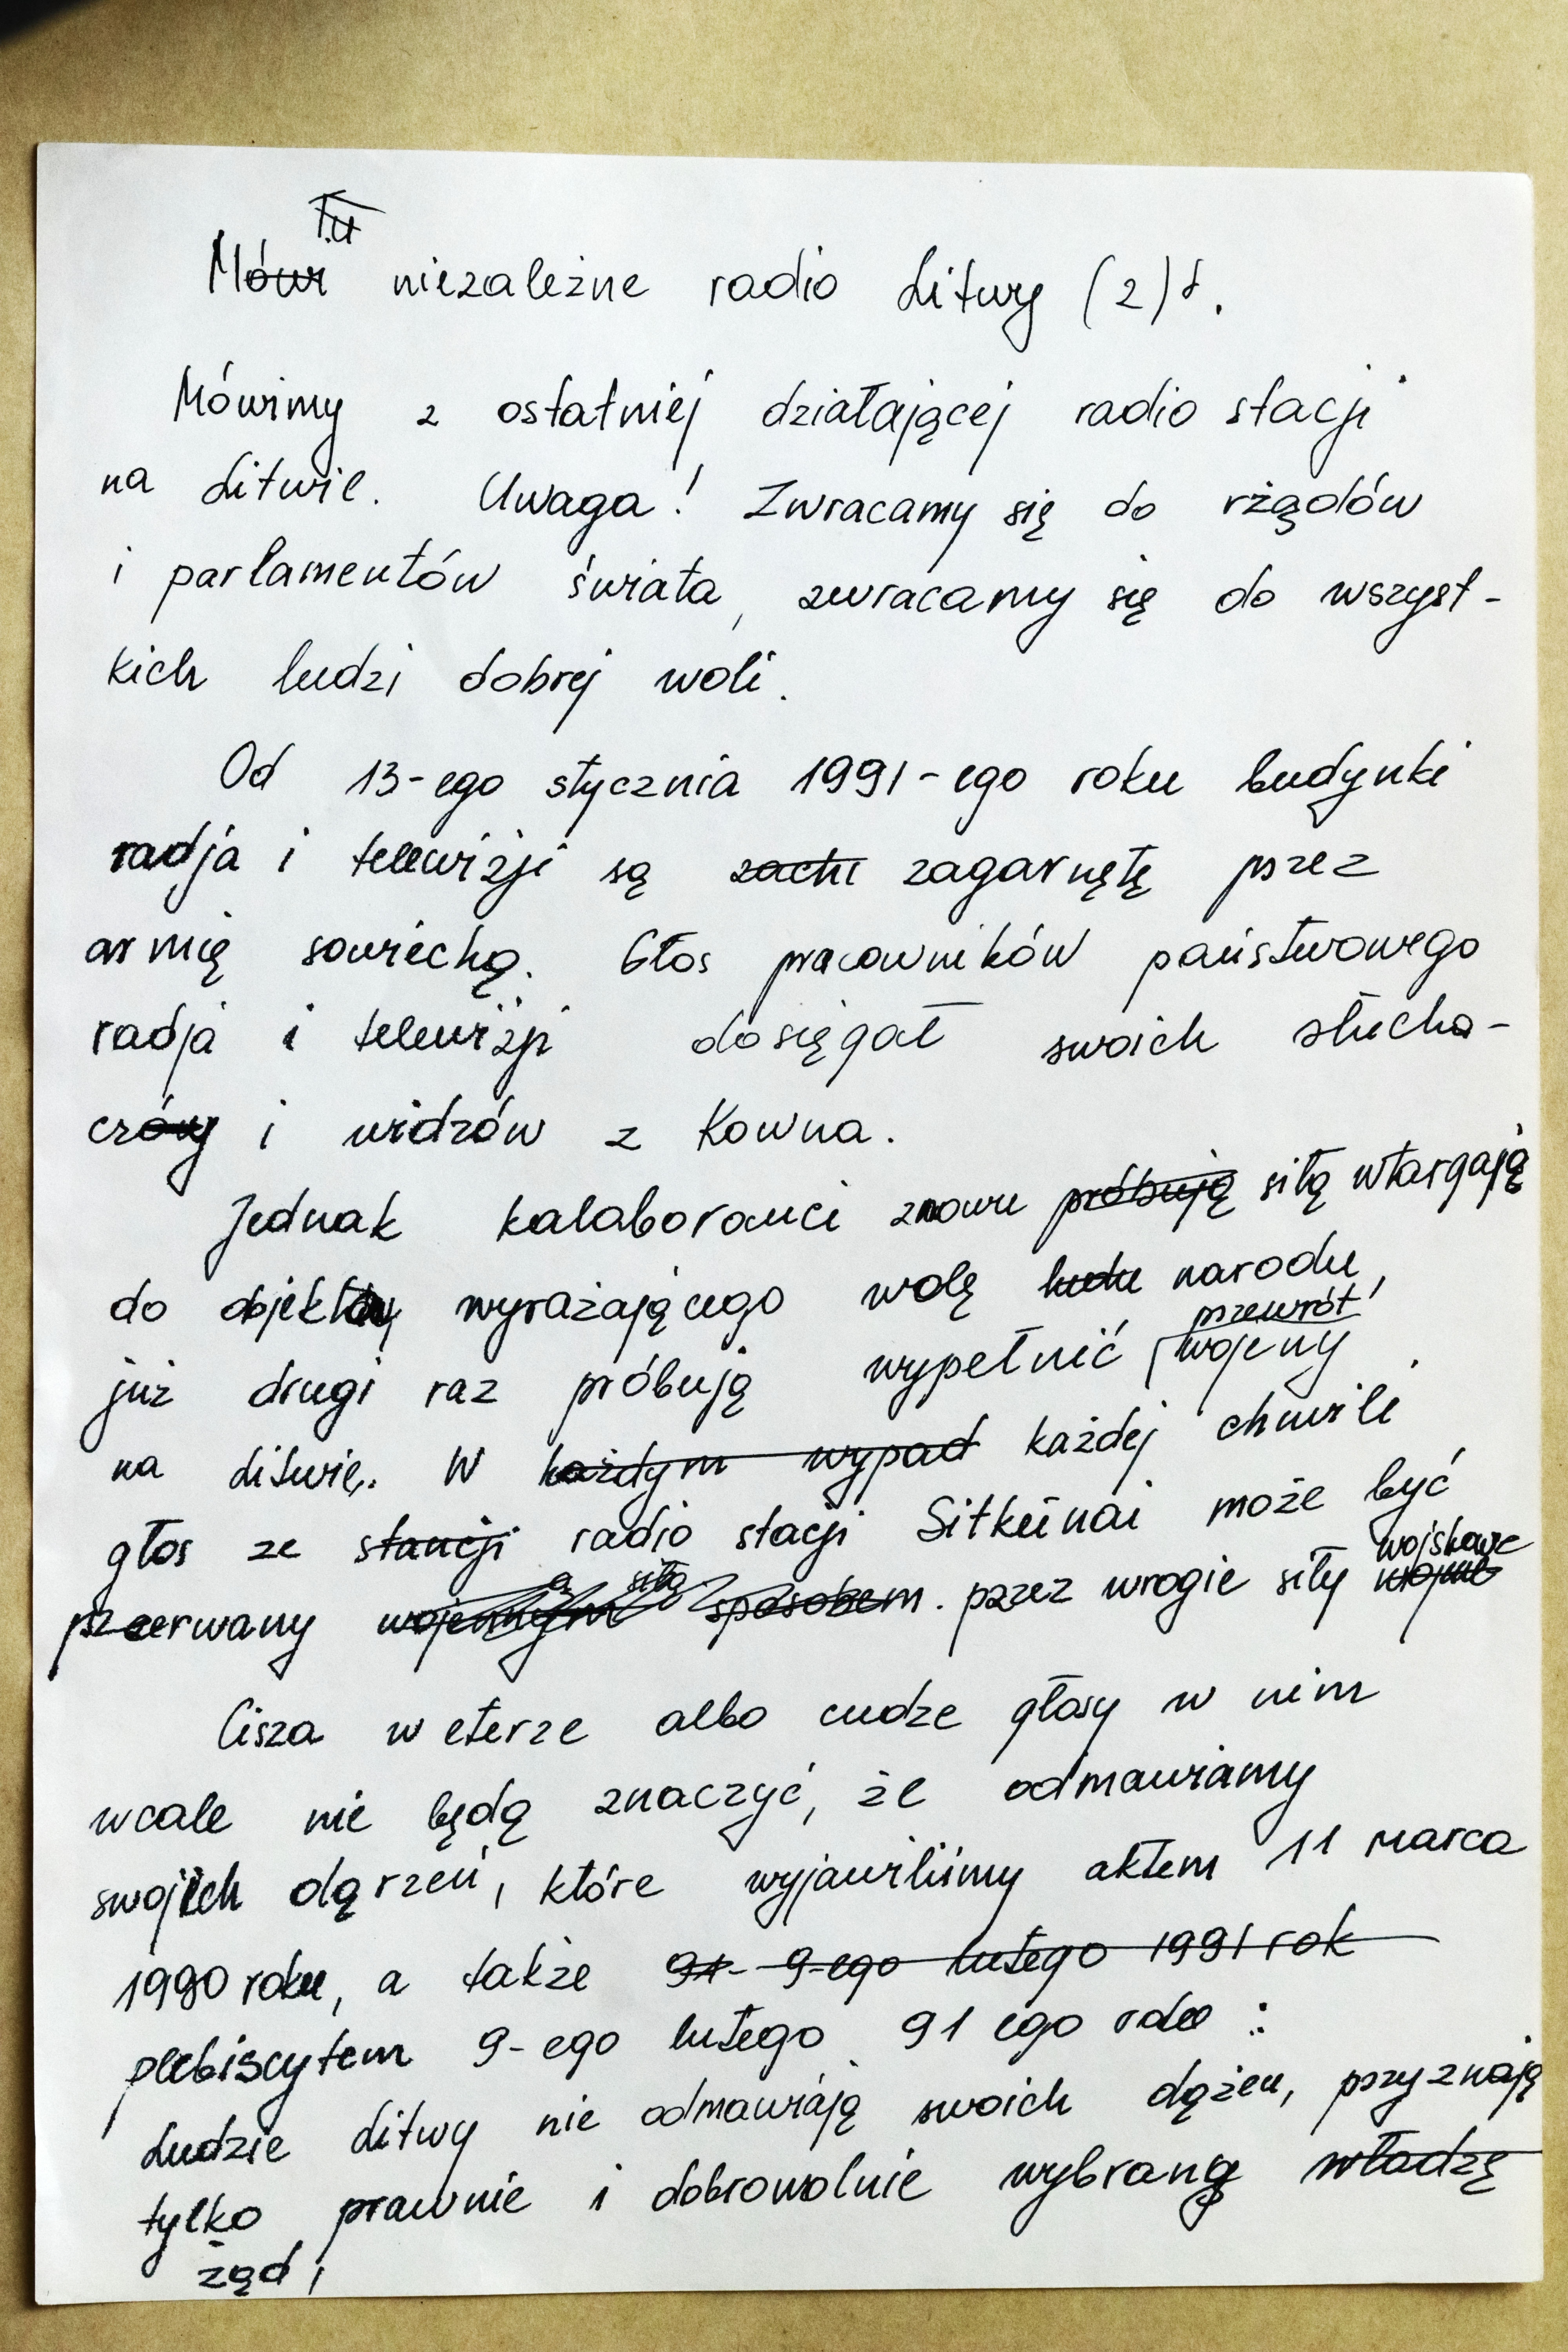 Tu
Mówi niezależne radio Litwy (2).
Mówimy z ostatniej działającej radio stacji
na Litwie. Uwaga! Zwracamy się do rżądów
i parlamentów świata, zwracamy się do wszyst-
kich ludzi dobrej woli.
Od 13-ego stycznia 1991-ego roku budynki
radja i telewizji są zachi zagarnętę przez
armię sowiechą. Głos pracowników państwowego
radja i telewizji dosięgał swoich słucha-
czów i widzów z Kowna.
Jednak kalaboranci znowu próbują siłą wtargają
do objektu wyrażającego wolę ludu narodu,
przewrót
już drugi raz próbują wypełnić wojeny
na Litwie. W każdym wypad każdej chwili
głos ze stancji radio stacji Sitkūnai może być
siłą wojskowe
przerwany wojennym sposobem. przez wrogie siły
Cisza w eterze albo cudze głosy w nim
wcale nie będą znaczyć, że odmawiamy
swojich dąrzeń, które wyjawiliśmy aktem 11 marca
1990 roku, a także 91- 9-ego lutego 1991 rok
plebiscytem 9-ego lutego 91 ego roku :
Ludzie Litwy nie odmawiają swoich dążeń, przyznają
tylko prawnie i dobrowolnie wybraną władzę
żąd,